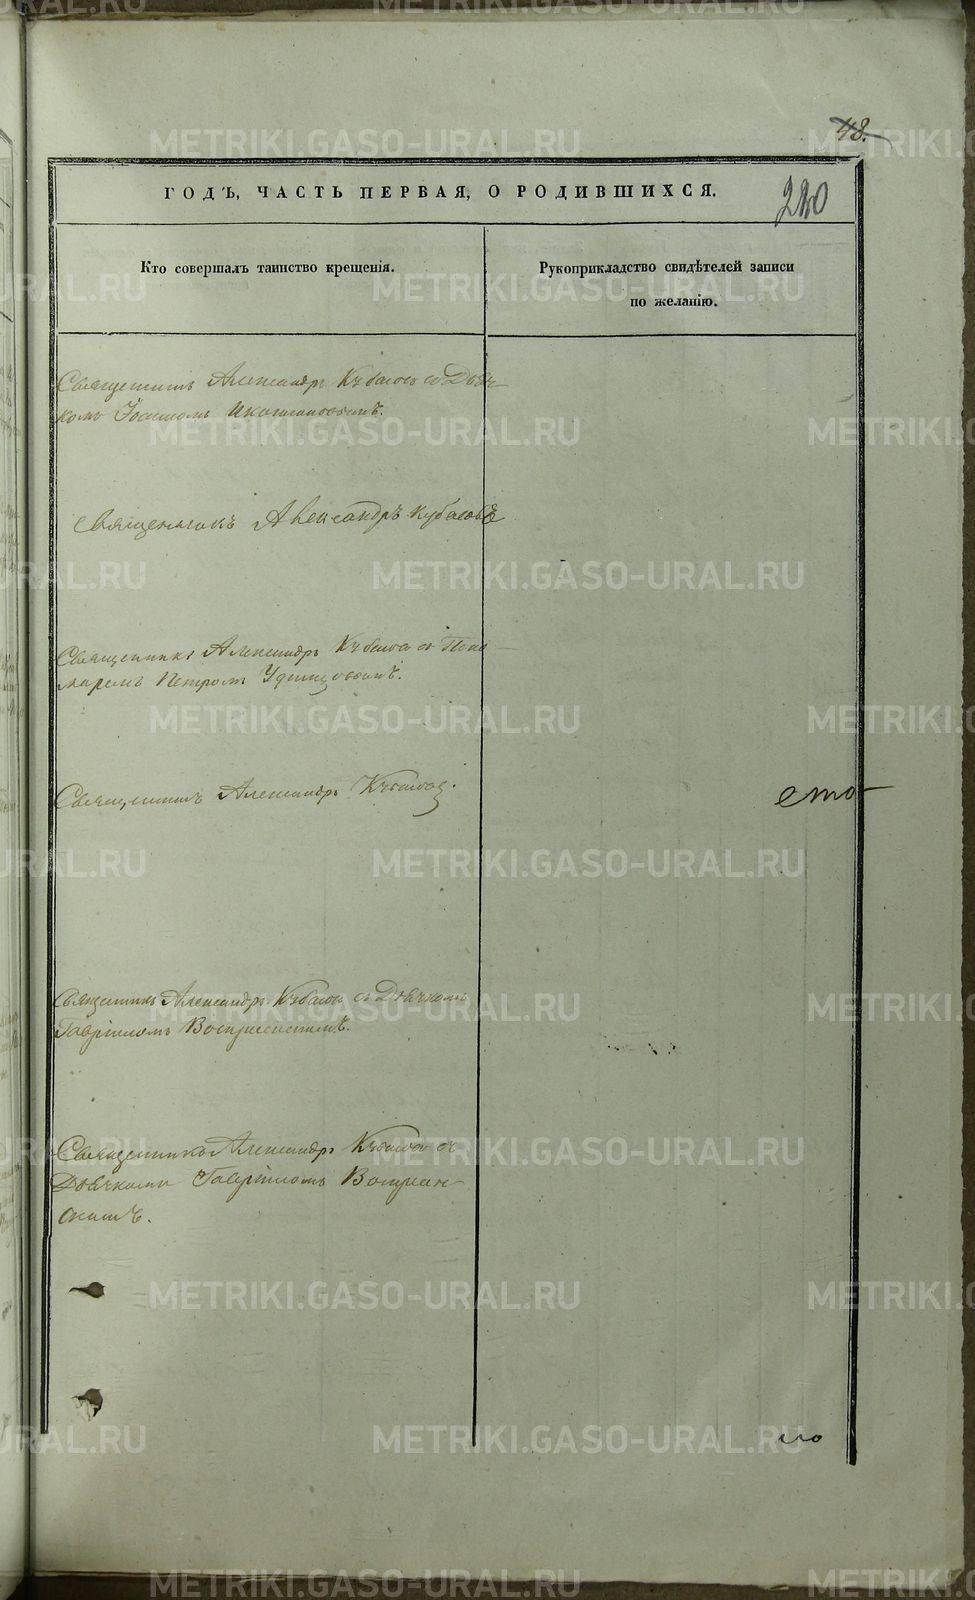 48.
ГОДЪ, ЧАСТЬ ПЕРВАЯ, О РОДИВШИХСЯ.
220
Кто совершалъ таинство крещенія.
Рукоприкладство свидѣтелей записи
по желанію.
Священникъ Александръ Кубасовъ съ Дьяч-
комъ
Священникъ Александръ Кубасовъ
Священникъ Александръ Кубасовъ съ Поно-
маремъ Петромъ Удинцовымъ.
Священникъ Александръ Кубасовъ.
ето
Священникъ Александръ Кубасовъ съ Дьячкомъ
Гавріиломъ Воскресенскимъ.
Священникъ Александръ Кубасовъ съ
Дьячкомъ Гавріиломъ
скимъ.
METRIKI.GASO-URAL.RU